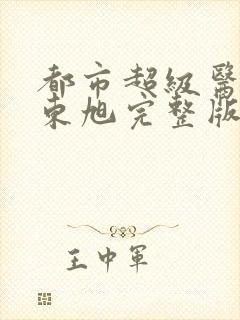 都市超級醫
東旭完整版
王中軍